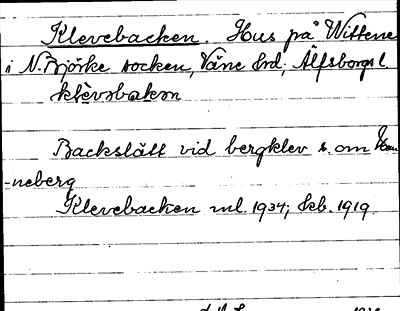 Klevebacken. Hus på Wittene
i N. Björke socken, Väne hrd; Älfsborgs l.
klèvəbakən
Backslätt vid bergklev s. om Hun-
-neberg
Klevebacken ml. 1934; kb. 1919.